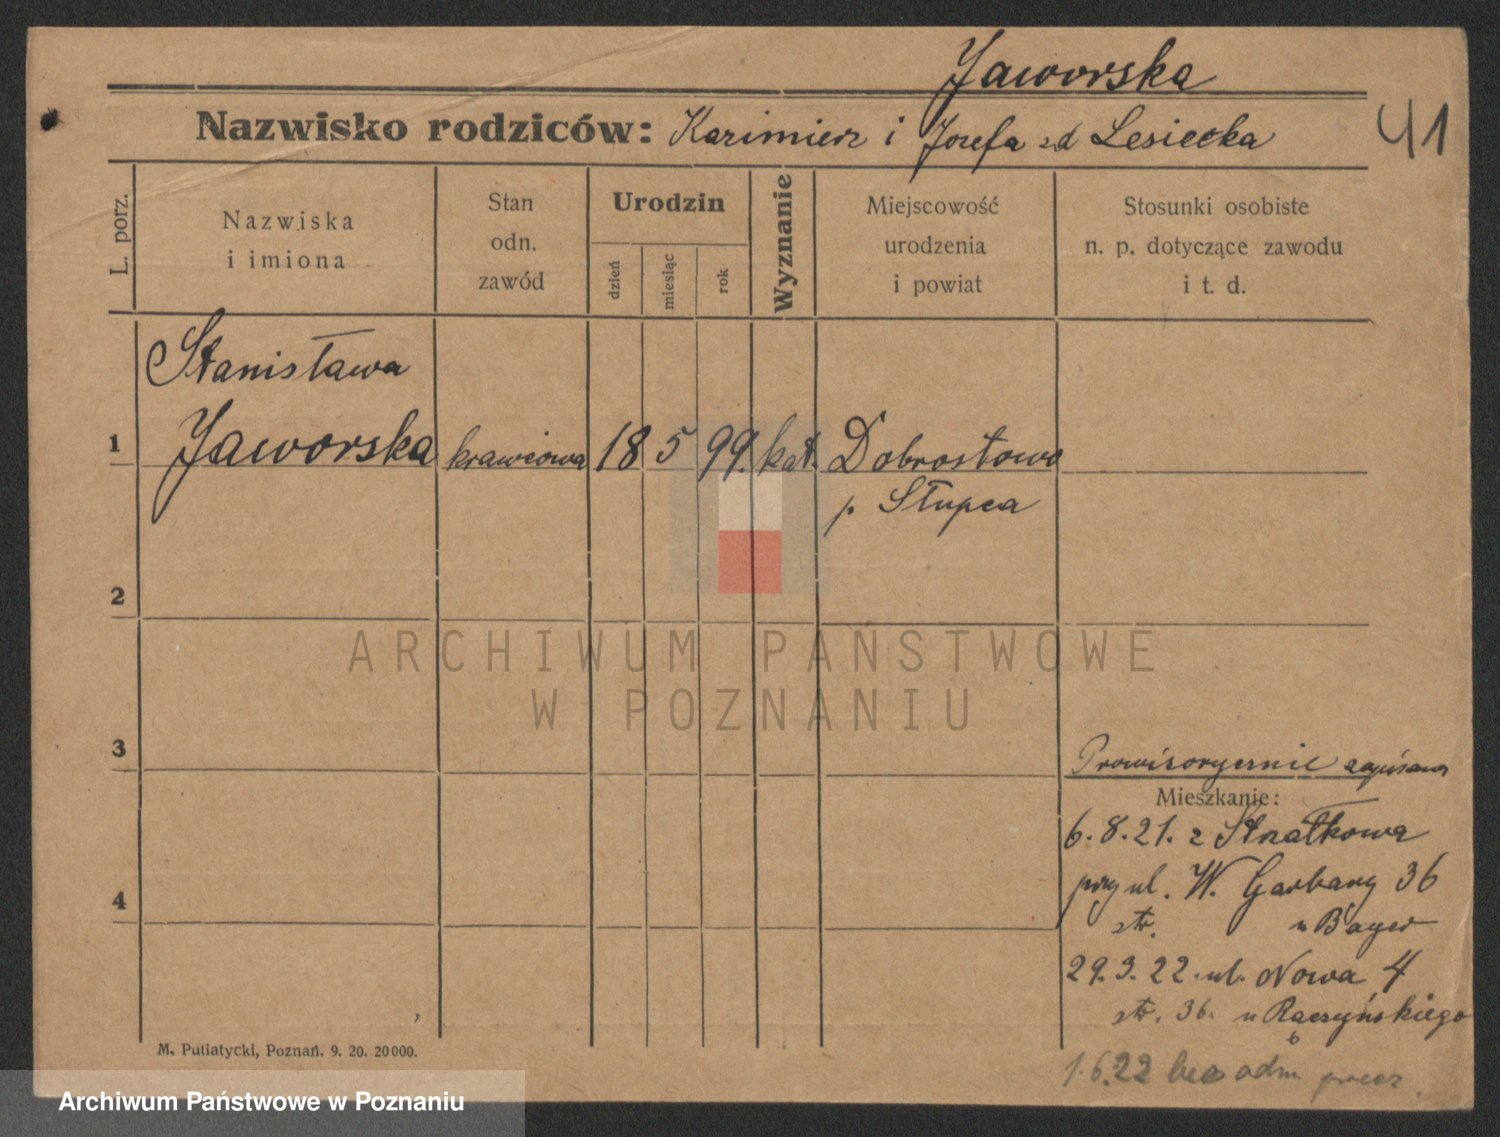 Jaworska
Nazwisko rodziców: Kazimierz i Józefa zd Lesiecka
41
L. porz.
Nazwiska
i imiona
Stan
odn.
zawód
Urodzin
dzień
miesiąc
rok
Wyznanie
Miejscowość
urodzenia
i powiat
Stosunki osobiste
n. p. dotyczące zawodu
i t. d.
Stanisława
1 Jaworska krawcowa 18 5 99. kat. Dobrostowo
p. Słupca
2
ARCHIWUM PAŃSTWOWE
W POZNANIU
3
Prowizorycznie zapisana
Mieszkanie:
6.8.21. z Strzałkowa
przy ul. W. Garbary 36
4
str. u Bayer
29.3.22. ul. Nowa 4
str. 36. u Raczyńskiego
1.6.22 bez odm.
M. Putiatycki, Poznań. 9. 20. 20000.
Archiwum Państwowe w Poznaniu